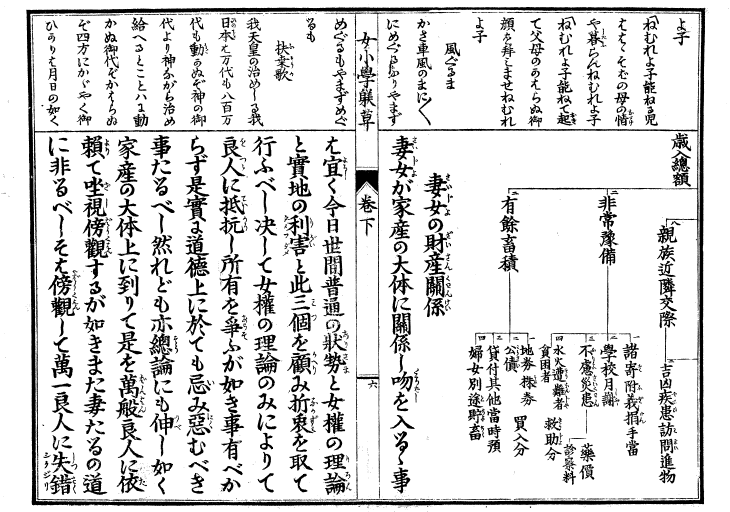 よ子
ねむれよ子能ねる児
はゝそばの母の情
や暮らんねむれよ子
ねむれよ子能ねて起
て父母のかはらぬ御
顔を拜ませねむれ
よ子
風ぐるま
かざ車風のまに〱
にめぐるなりやまず
歳入總額
親族近隣交際
吉凶疾患訪問進物
非常豫備
諸寄附義捐手當
學校月謝
不慮災患
藥價
診察料
水火遭難者
貧困者
救助分
有餘畜積
地券株券
公債
買入分
貸付其他當時預
婦女別途貯畜
妻女の財産關係
妻女が家産の大体に關係し吻を入るゝ事
女小學躾草
卷下
六
めぐるもやまずめぐ
るも
扶桑歌
我天皇の治めしる我
日本は万代も八百万
代も動かぬぞ神の御
代より神ながら治め
給へることハにま動
かぬ御代ぞかはらぬ
ぞ四方にかゞやく御
ひかりは月日の如く
は宜く今日世間普通の狀勢と女權の理論
と實地の利害と此三個を顧み折衷を取て
行ふべし决して女權の理論のみによりて
良人に抵抗し所有を爭ふが如き事有べか
らず是實は道德上に於ても忌み惡むべき
事たるべし然れども亦總論にも伸し如く
家産の大体上に到りて是を萬般良人に依
賴て坐視傍觀するが如きまた妻たるの道
に非るべしそは傍觀して萬一良人に失錯